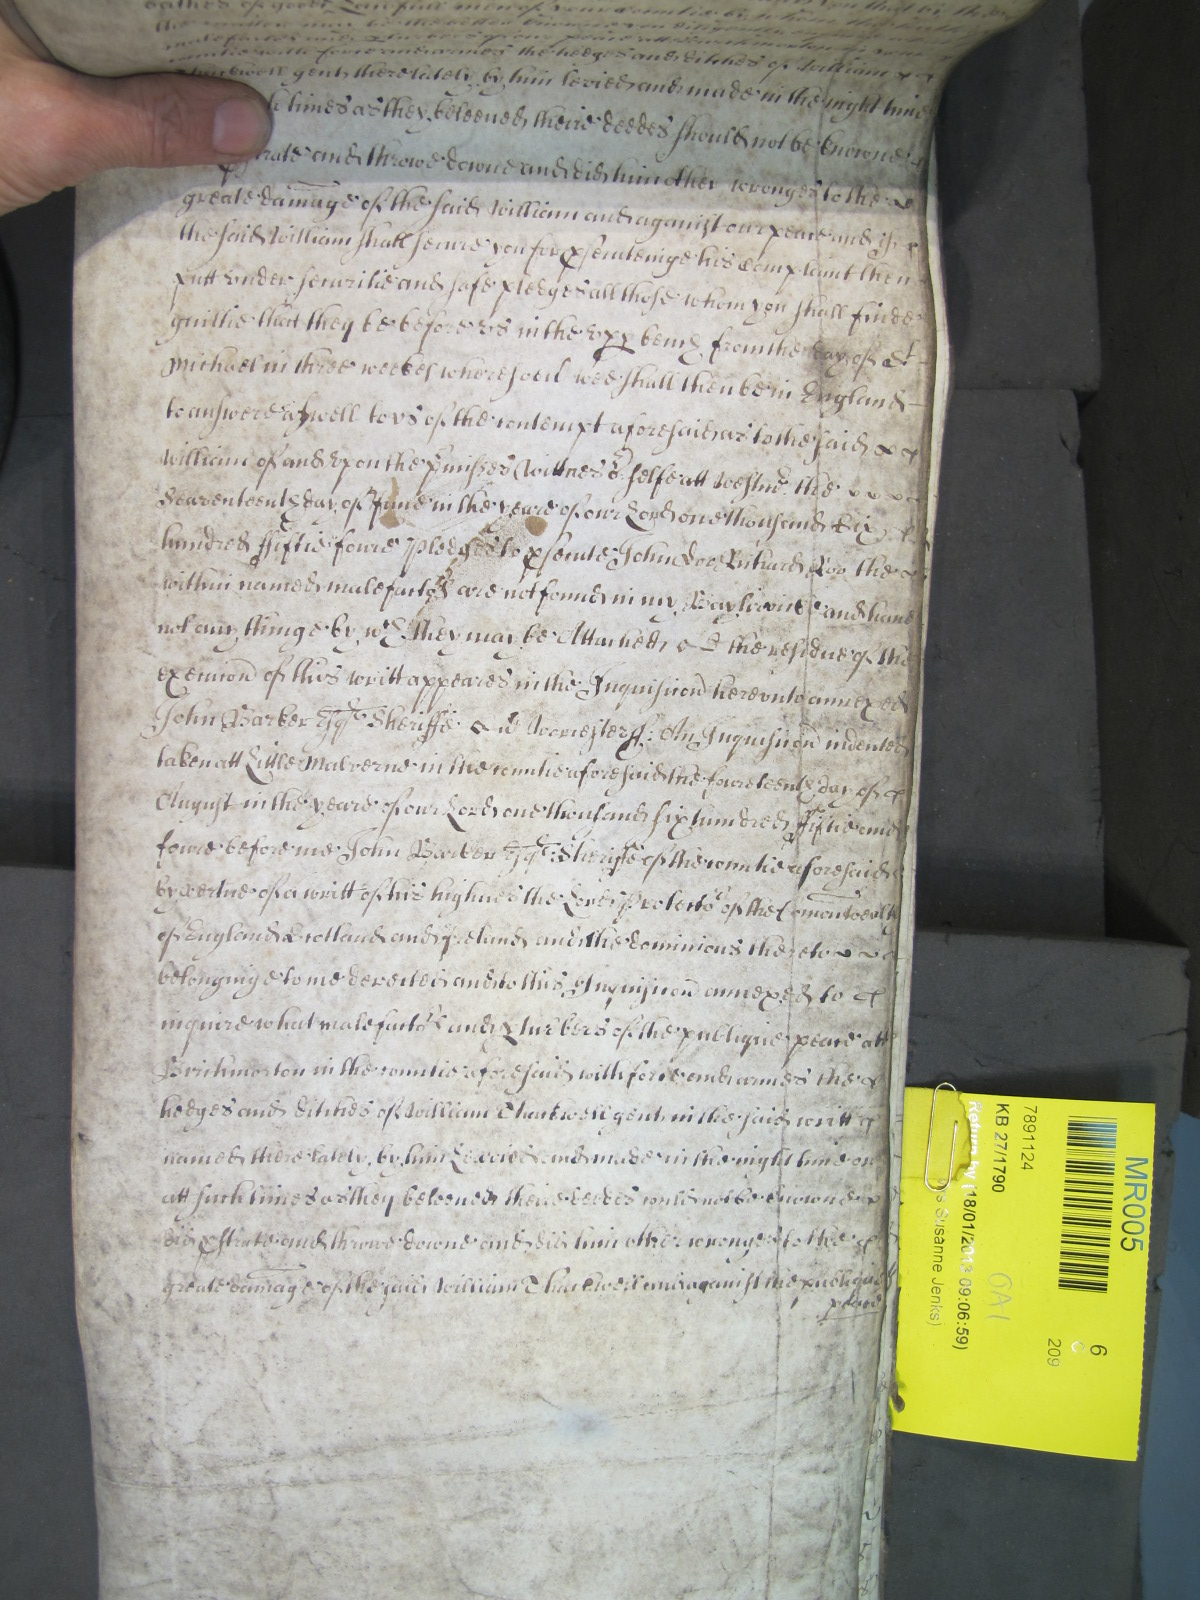 oathes of good & lawfull men of your Countie by whom the truth of
the matter may be the better knowne you diligently
malefactors and pturbers of our peace att Birchmorton in your
countie with force and armes the hedges and ditches of William
Thackwell gent there lately by him levied and made in the night time
times as they beleeved theire deedes should not be knowne
pstrate and throwe downe and did him other wronges to the
greate damage of the said William and against our peace and if
the said William shall secure you for psecuteinge his Complaint then
putt under securitie and safe pledges all those whom you shall finde
guiltie that they be before us in the upp bench from the day of St
Michael in three weekes wheresoever wee shall then be in England
to answere aswell to us of the contempt aforesaid as to the said
William of and upon the pmisses Wittnes o selfe att Westmr the
seaventeenth day of June in the yeare of our Lord one thousand six
hundred fiftie foure Pledges to psecute John Doe Richard Roo the
within named malefactors are not found in my Bayliwicke and have
not any thinge by wch they may be Attached & the residue of the
execucion of this writt appeares in the Inquisicion hereunto annexed
John Barker Esqr Sheriffe Worcesterss: An Inquisicion indented
taken att Little Malverne in the countie aforesaid the foureteenth day of
August in the yeare of our Lord one thousand six hundred fiftie and
foure before me John Barker Esqr Sheriffe of the countie aforesaid
by vertue of a writt of his highnes the Lord Protector of the Comonwealth
of England Scotland and Ireland and the dominions thereto
belonginge to me derected and to this Inquisicion annexed to
inquire what malefactors and pturbers of the publique peace att
Birchmorton in the countie aforesaid with force and armes the
hedges and ditches of William Thackwell gent in the said writt
named there lately by him levied and made in the night time or
att such times as they beleeved theire deedes would not be knowne
did pstrate and throwe downe and did him other wronges to the
greate damage of the said William Thackwell and against the publique
peace
MR005
6
C
209
7891124
KB 27/1790
Return by (18/01/2013 09:06:59)
Susanne Jenks)
OA1